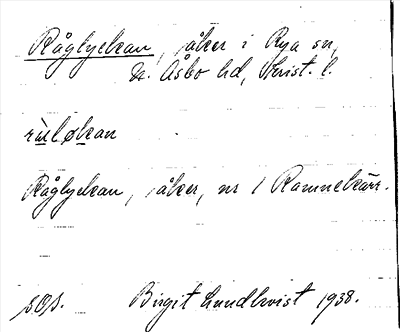 Råglyckan, åker i Rya sn,
N. Åsbo hd, Krist. l.
rùløkan
Råglyckan, åker, nr 1 Ramnekärr.
s.O.s. Birgit Lundkvist 1938.